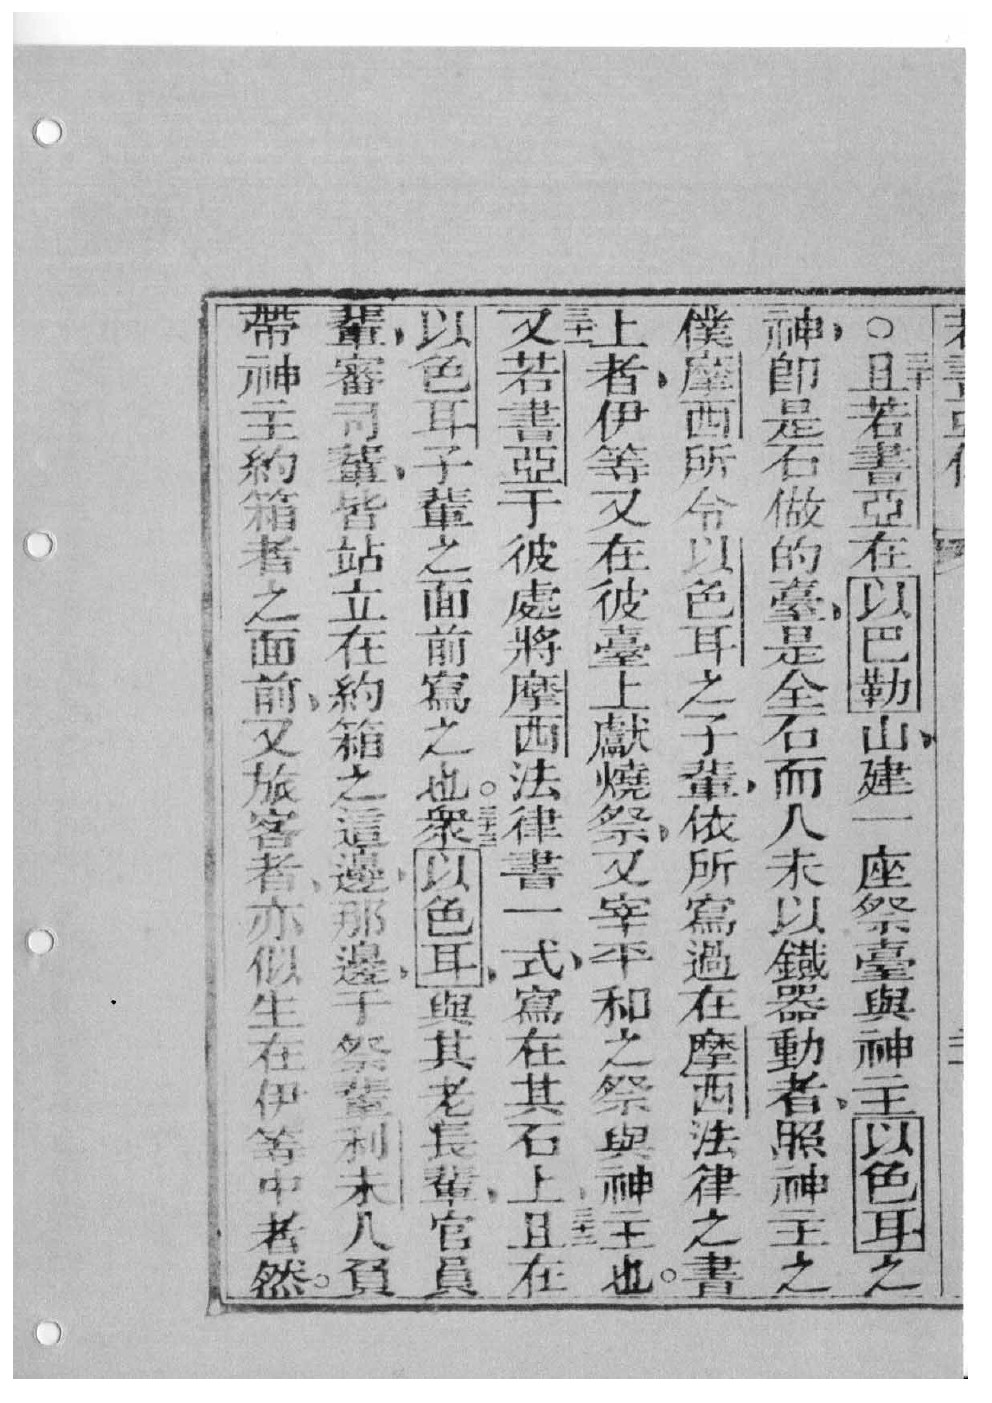 若書亞
○三十且若書亞在以巴勒山、建一座祭臺與神主以色耳之
神、卽是石做的臺、是全石而人未以鐵器動者、照神主之
僕摩西所令以色耳之子輩、依所寫過在摩西法律之書
上者、伊等又在彼臺上獻燒祭、又宰平和之祭與神主也。
三十二又若書亞于彼處將摩西法律書一式、寫在其石上、三十二且在
以色耳子輩之面前寫之也。三十三衆以色耳、與其老長輩、官員
輩、審司輩、皆站立在約箱之這邊、那邊、于祭輩利未人負
帶神主約箱者之面前、又旅客者、亦似生在伊等中者然。